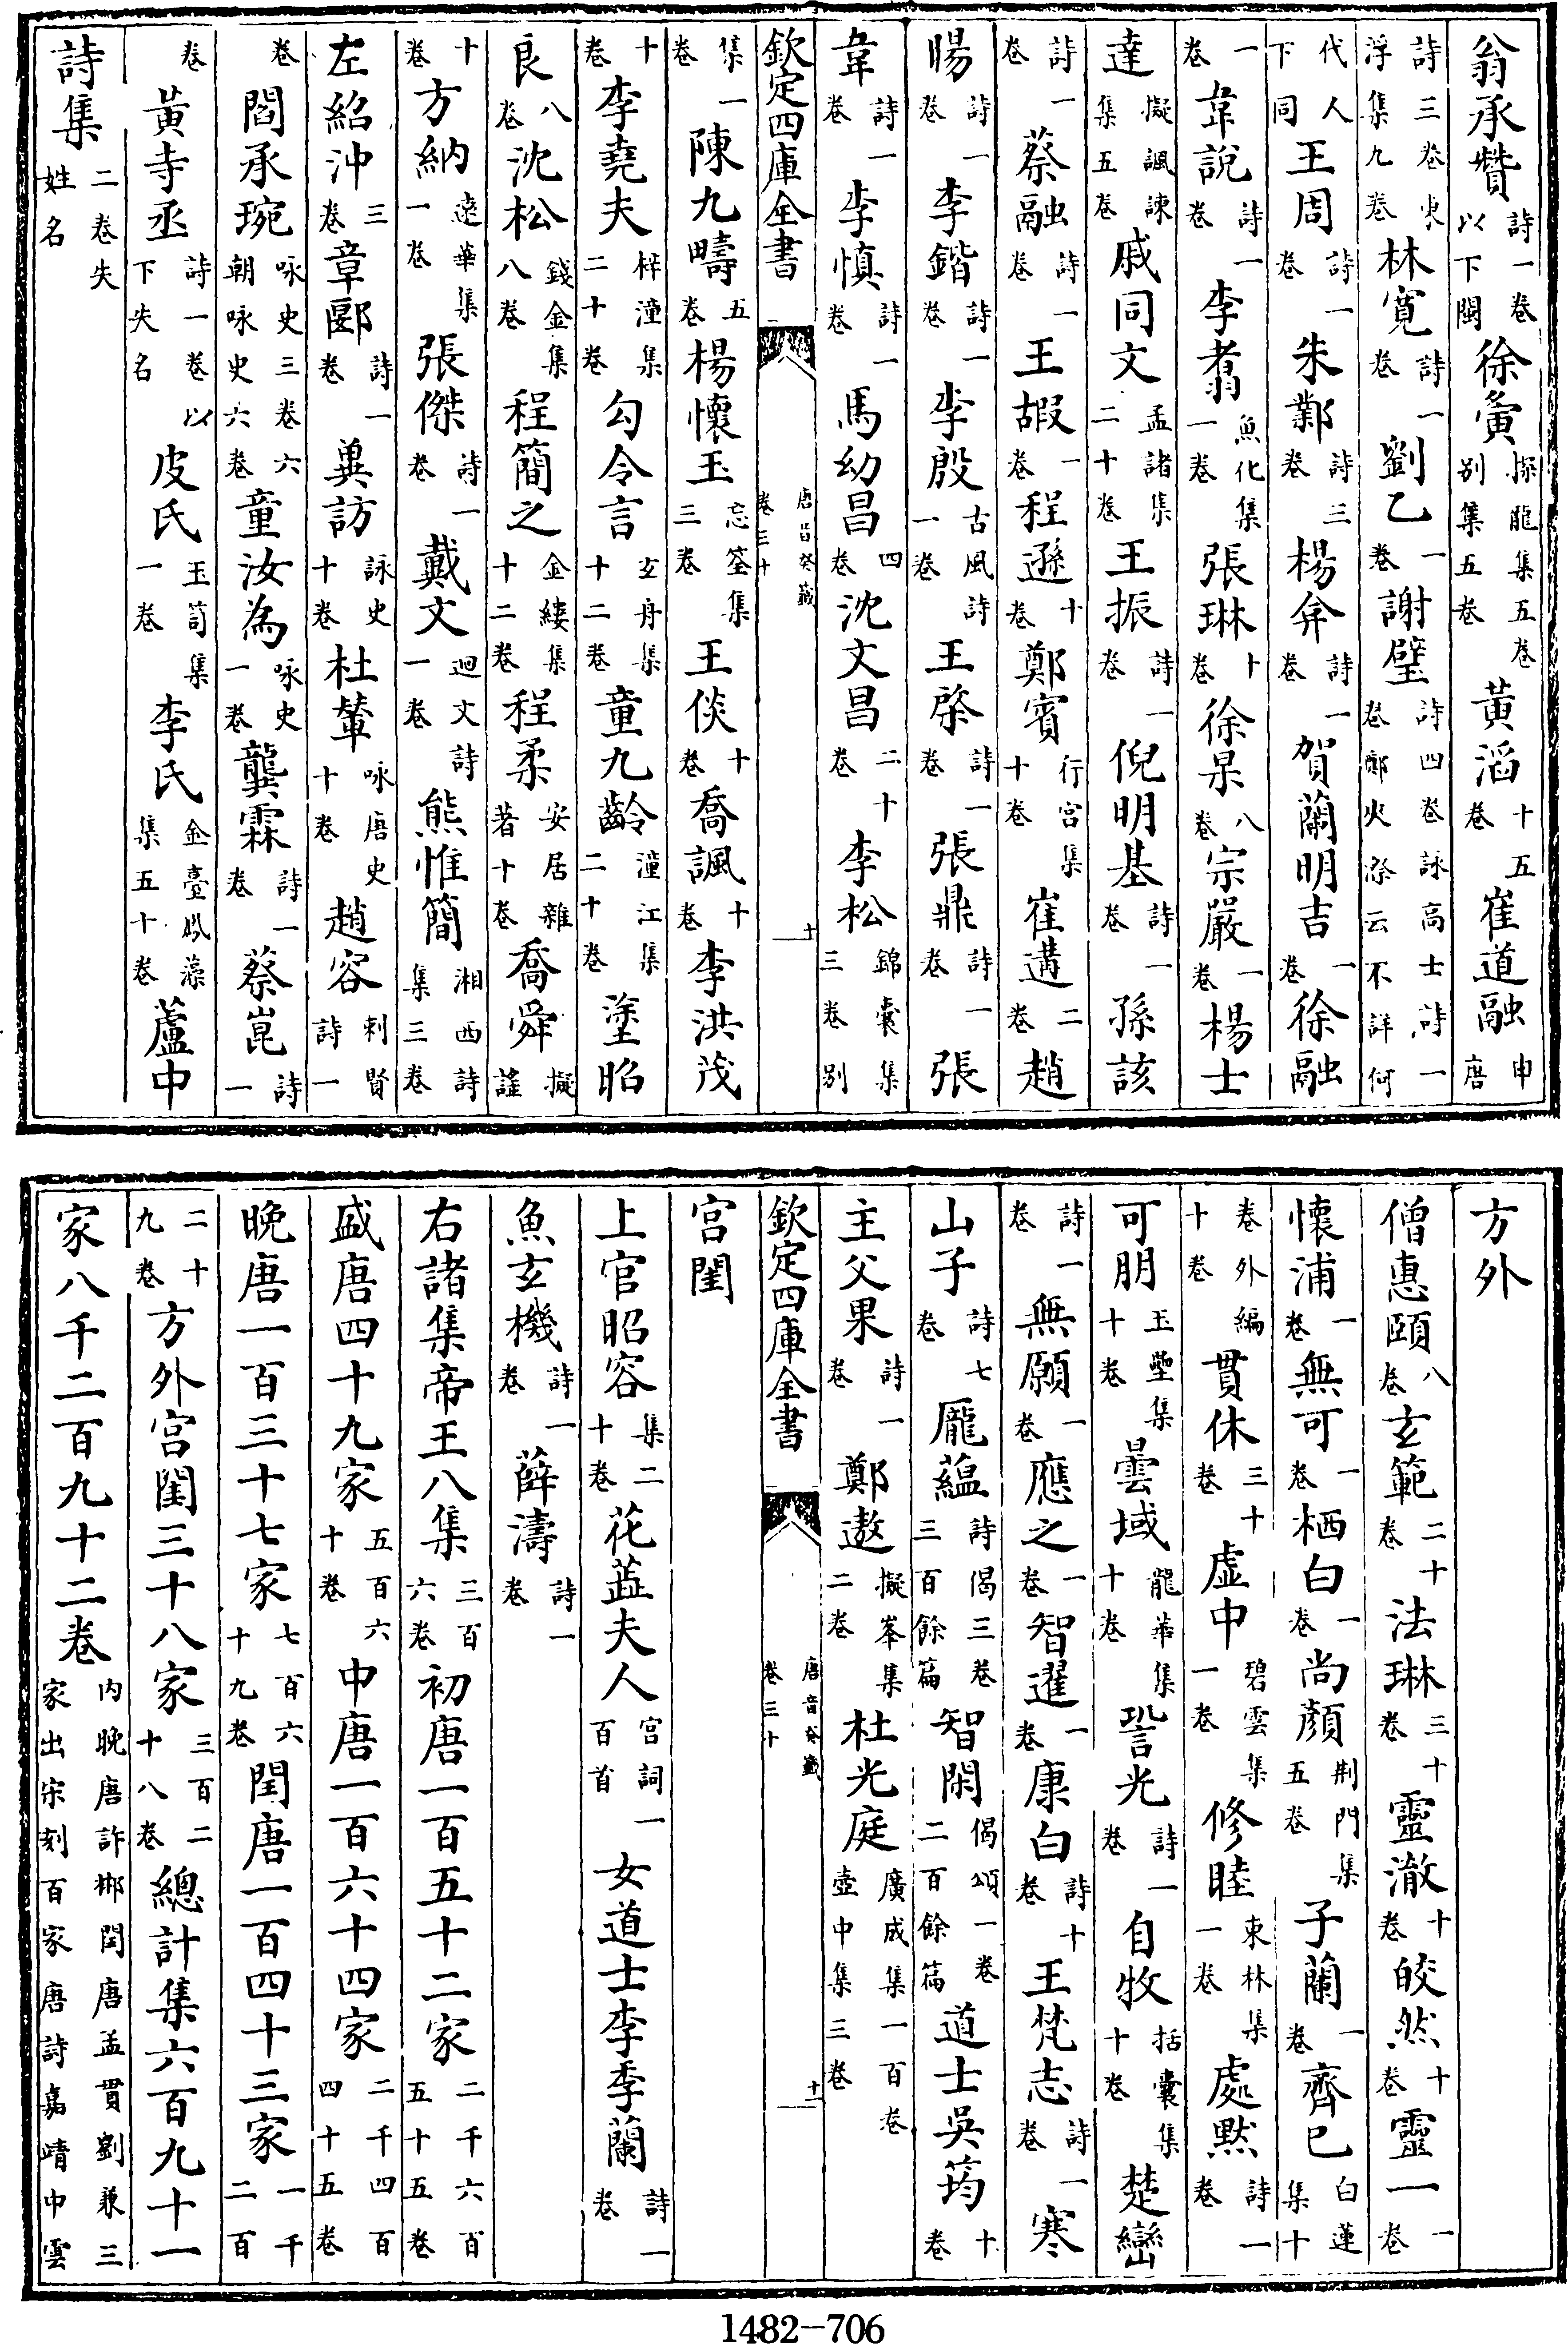 翁承贊詩一卷以下閩徐寅探龍集五卷别集五卷黃滔十五卷崔道融申唐
詩三卷東浮集九卷林寛詩一卷劉乙一卷謝璧詩四卷詠高士詩一卷鄭火漈云不詳何
代人下同王周詩一卷朱鄴詩三卷楊弇詩一卷賀蘭明吉一卷徐融
一卷韋說詩一卷李翥魚化集一卷張琳十卷徐杲八卷宗嚴一卷楊士
達擬諷諫集五卷戚同文孟諸集二十卷王振詩一卷倪明基詩一卷孫該
詩一卷蔡融詩一卷王嘏一卷程遜十卷鄭賓行宮集十卷崔遘二卷趙
暘詩一卷李鍇詩一卷李殷古風詩一卷王棨詩一卷張鼎詩一卷張
韋詩一卷李慎詩一卷馬幼昌四卷沈文昌二十卷李松錦囊集三卷别
欽定四庫全書 唐音癸籖卷三十 十一
集一卷陳九疇五卷楊懷玉忘筌集三卷王倓十卷喬諷十卷李洪茂
十卷李堯夫梓潼集二十卷勾令言玄舟集十二卷童九齡潼江集二十卷塗昭
良八卷沈松錢金集八卷程簡之金縷集十二卷程柔安居雜著十卷喬舜擬謡
十卷方納遠華集一卷張傑詩一卷戴文迴文詩一卷熊惟簡湘西詩集三卷
左紹沖三卷章郾詩一卷冀訪詠史十卷杜輦咏唐史十卷趙容刺賢詩一
卷閻承琬咏史三卷六朝咏史六卷童汝為咏史一卷龔霖詩一卷蔡崑詩一
卷黃寺丞詩一卷以下失名皮氏玉笥集一卷李氏金臺鳳藻集五十卷蘆中
詩集二卷失姓名
方外
僧惠頤八卷玄範二十卷法琳三十卷靈澈十卷皎然十卷靈一一卷
懷浦一卷無可一卷栖白一卷尚顔荆門集五卷子蘭一卷齊已白蓮集十
卷外編十卷貫休三十卷虚中碧雲集一卷修睦東林集一卷處黙詩一卷
可朋玉壘集十卷曇域龍華集十卷訔光詩一卷自牧括囊集十卷楚巒
詩一卷無願一卷應之一卷智暹一卷康白詩十卷王梵志詩一卷寒
山子詩七卷龐藴詩偈三卷三百餘篇智閑偈頌一卷二百餘篇道士吳筠十卷
主父果詩一卷鄭遨擬峯集二卷杜光庭廣成集一百卷壺中集三卷
欽定四庫全書 唐音癸籖卷三十 十二
宮閨
上官昭容集二十卷花蕋夫人宮詞一百首女道士李季蘭詩一卷
魚玄機詩一卷薛濤詩一卷
右諸集帝王八集三百六卷初唐一百五十二家二千六百五十五卷
盛唐四十九家五百六十卷中唐一百六十四家二千四百四十五卷
晚唐一百三十七家七百六十九卷閏唐一百四十三家一千二百
二十九卷方外宮閨三十八家三百二十八卷總計集六百九十一
家八千二百九十二卷内晚唐許郴閏唐孟貫劉兼三家出宋刻百家唐詩嘉靖中雲
1482-706